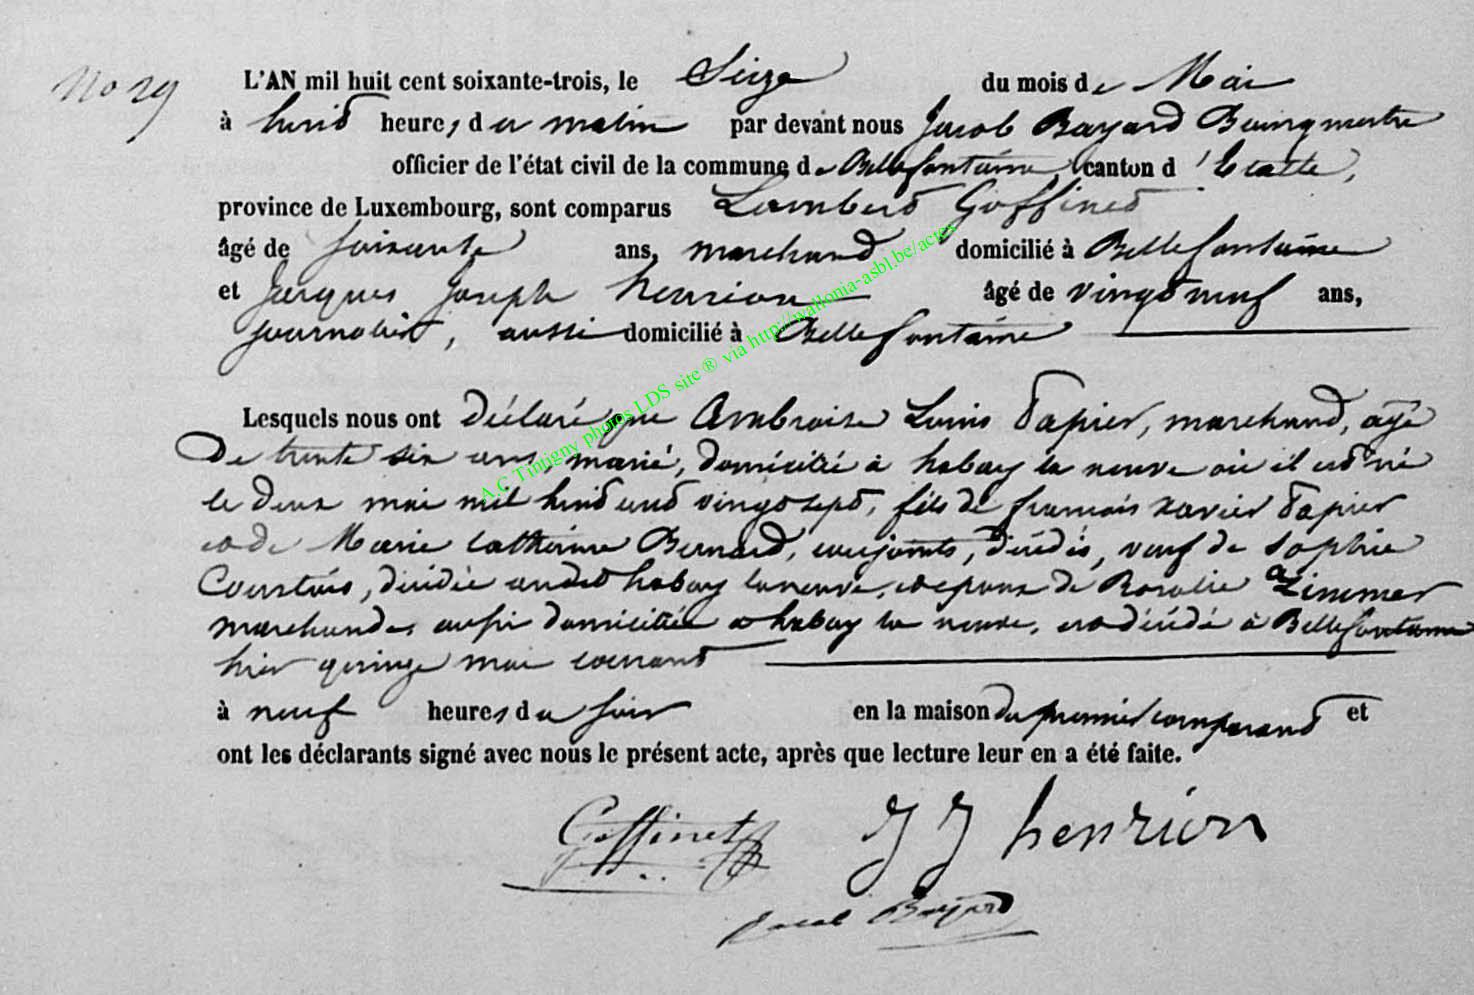 No 29
L'AN mil huit cent soixante-trois, le Seize du mois de Mai
à huit heures du matin par devant nous Jacob Bayard Bourgmestre
officier de l'état civil de la commune de Bellefontaine, canton d'Etalle,
province de Luxembourg, sont comparus Lambert Goffinet
âgé de soixante ans, marchand domicilié à Bellefontaine
et Jacques Joseph henrion âgé de vingt neuf ans,
journalier, aussi domicilié à Bellefontaine
Lesquels nous ont déclaré que Ambroise Louis Papier, marchand, âgé
de trente six ans, marié, domicilié à habay la neuve où il est né
le deux mai mil huit cent vingt sept, fils de francois xavier Papier
et de Marie Catherine Bernard, conjoints, décédés, veuf de Sophie
décédée audit habay la neuve, et epoux de Rosalie Zimmer
marchande, aussi domiciliée à habay la neuve, est décédé à Bellefontaine
hier quinze mai courant
à neuf heures du soir en la maison du premier comparant et
ont les déclarants signé avec nous le présent acte, après que lecture leur en a été faite.
Goffinet J J henrion
Jacob Bayard
A.C Tintigny photos LDS site ® via http://wallonia-asbl.be/actes